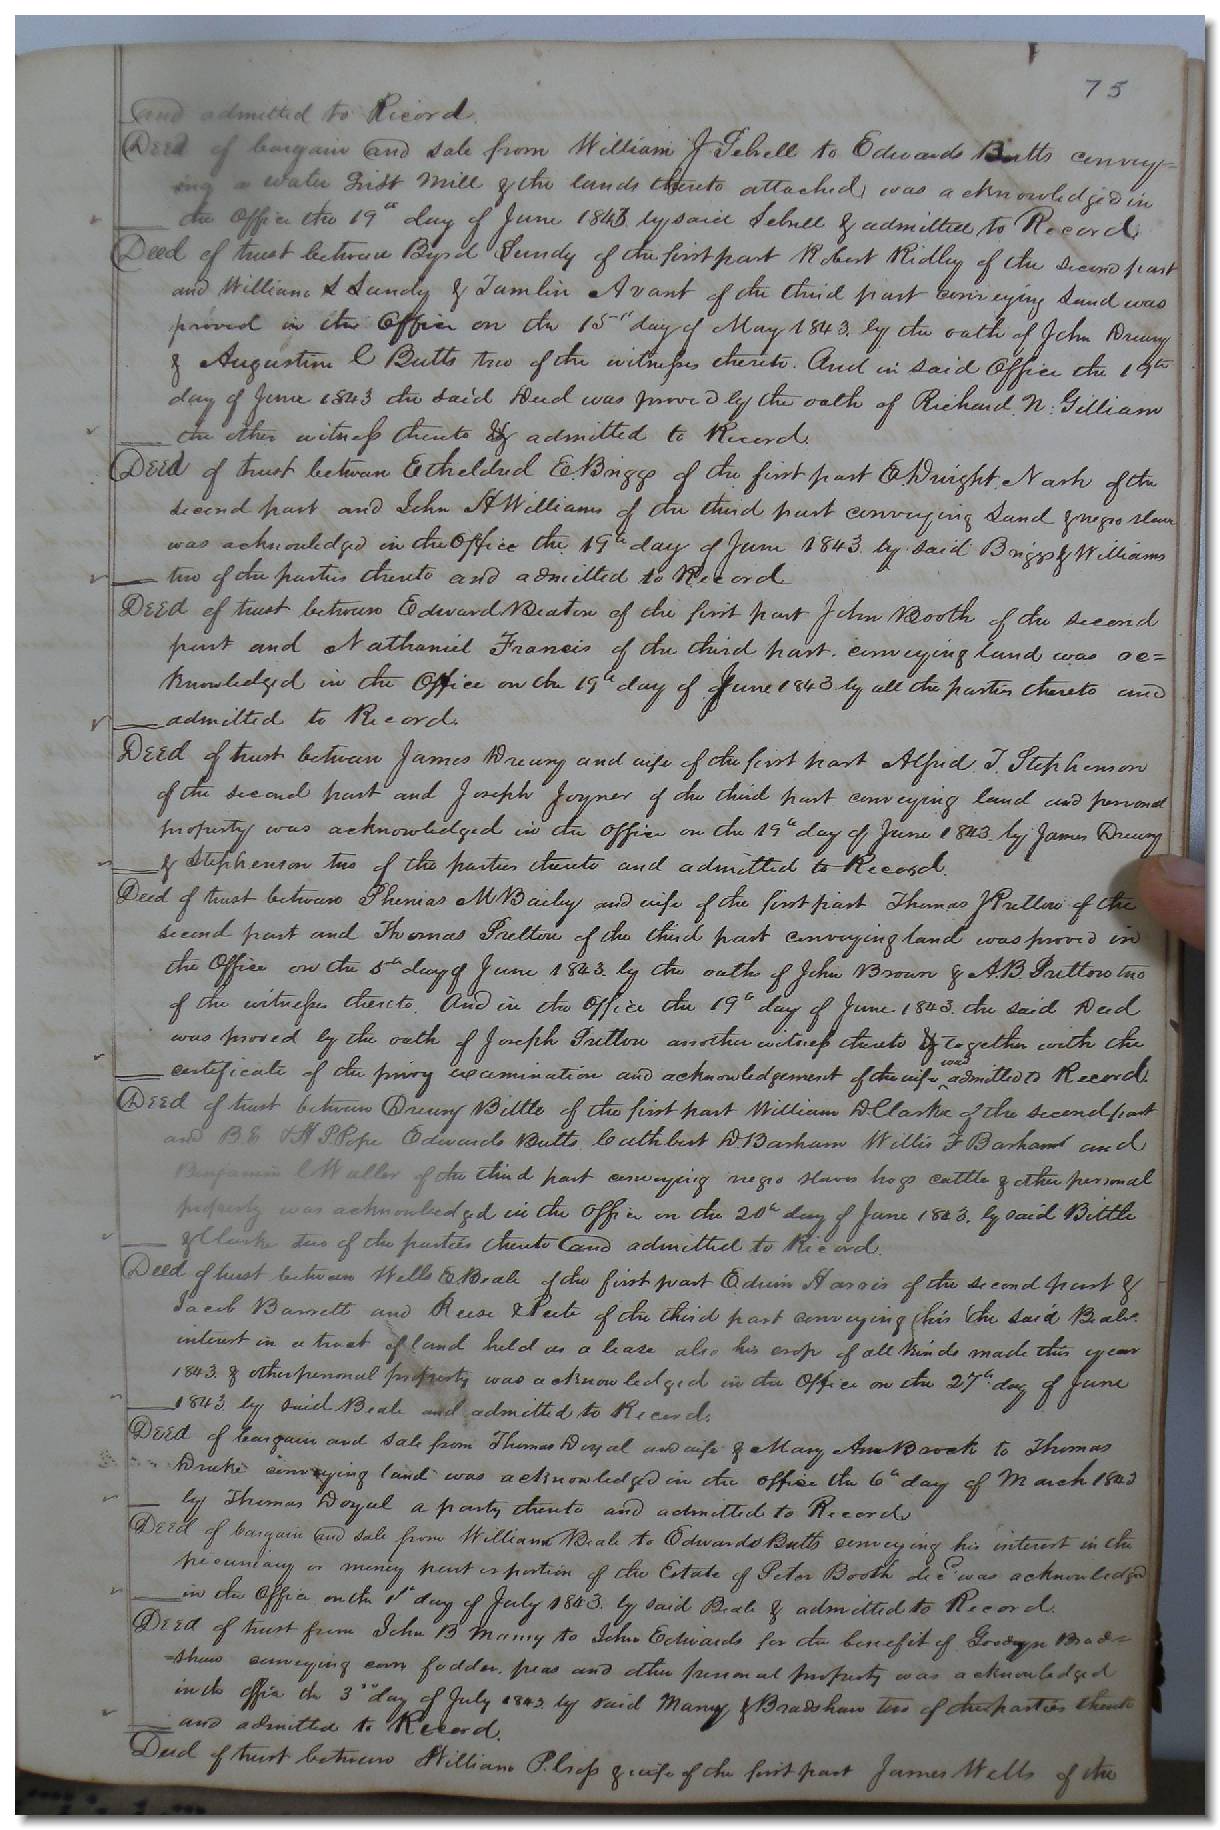 75
and admitted to Record.
Deed of bargain and sale from William J Sebrell to Edwards Butts convey=
ing a water Grist Mill & the lands thereto attached was acknowledged in
the Office the 19th day of June 1843 by said Sebrell & admitted to Record.
Deed of trust between Byrd Lundy of the first part Robert Ridley of the second part
and William L Lundy & Tamlin Avant of the third part conveying Land was
proved in the Office on the 15th day of May 1843. by the oath of John Drewry
& Augustine C Butts two of the witnesses thereto. And in said Office the 19th
day of June 1843 the said Deed was proved by the oath of Richard N. Gilliam
the other witness thereto & admitted to Record.
Deed of trust between Etheldred E. Briggs of the first part E. Dwight Nash of the
second part and John A Williams of the third part conveying Land & negro slave
was acknowledged in the Office the 19th day of June 1843 by said Briggs & Williams
two of the parties thereto and admitted to Record
Deed of trust between Edward Beaton of the first part John Booth of the second
part and Nathaniel Francis of the third part. conveying land was ac=
knowledged in the Office on the 19th day of June 1843 by all the parties thereto and
admitted to Record.
Deed of trust between James Drewry and wife of the first part Alfred T. Stephenson
of the second part and Joseph Joyner of the third part conveying land and personal
property was acknowledged in the office on the 19th day of June 1843. by James Drewry
& Stephenson two of the parties thereto and admitted to Record.
Deed of trust between Phenias M Bailey and wife of the first part Thomas J Pretlow of the
second part and Thomas Pretlow of the third part conveying land was proved in
the Office on the 5th day of June 1843. by the oath of John Brown & A.B. Pretlow two
of the witnesses thereto. And in the Office the 19th day of June 1843. the said Deed
was proved by the oath of Joseph Pretlow another witness thereto & together with the
certificate of the privy examination and acknowledgement of the wife was admitted to Record.
Deed of trust between Drewry Bittle of the first part William D. Clarke of the second part
and B.E & H P Pope Edwards Butts Cuthbert D. Barham Willis F Barham and
Benjamin C Waller of the third part conveying negro slaves hogs cattle & other personal
property was acknowledged in the Office on the 20th day of June 1843. by said Bittle
& Clarke two of the parties thereto and admitted to Record.
Deed of trust between Wells E Beale of the first part Edwin Harris of the second part &
Jacob Barrett and Reese & Peete of the third part conveying his the said Beale
interest in a tract of land held as a lease also his crop of all kinds made this year
1843. & other personal property was acknowledged in the Office on the 27th day of June
1843 by said Beale and admitted to Record.
Deed of bargain and sale from Thomas Doyal and wife & Mary Ann Brock to Thomas
Drake conveying land was acknowledged in the office the 6th day of March 1843
by Thomas Doyal a party thereto and admitted to Record
Deed of bargain and sale from William Beale to Edwards Butts conveying his interest in the
pecuniary or money part or portion of the Estate of Peter Booth decd was acknowledged
in the Office on the 1st day of July 1843. by said Beale & admitted to Record.
Deed of trust from John B Manry to John Edwards for the benefit of Goodwyn Brad=
=shaw conveying corn fodder, peas and other personal property was acknowledged
in the office the 3rd day of July 1843 by said Manry & Bradshaw two of the parties thereto
and admitted to Record.
Deed of trust between William P. & wife of the first part James Wells of the